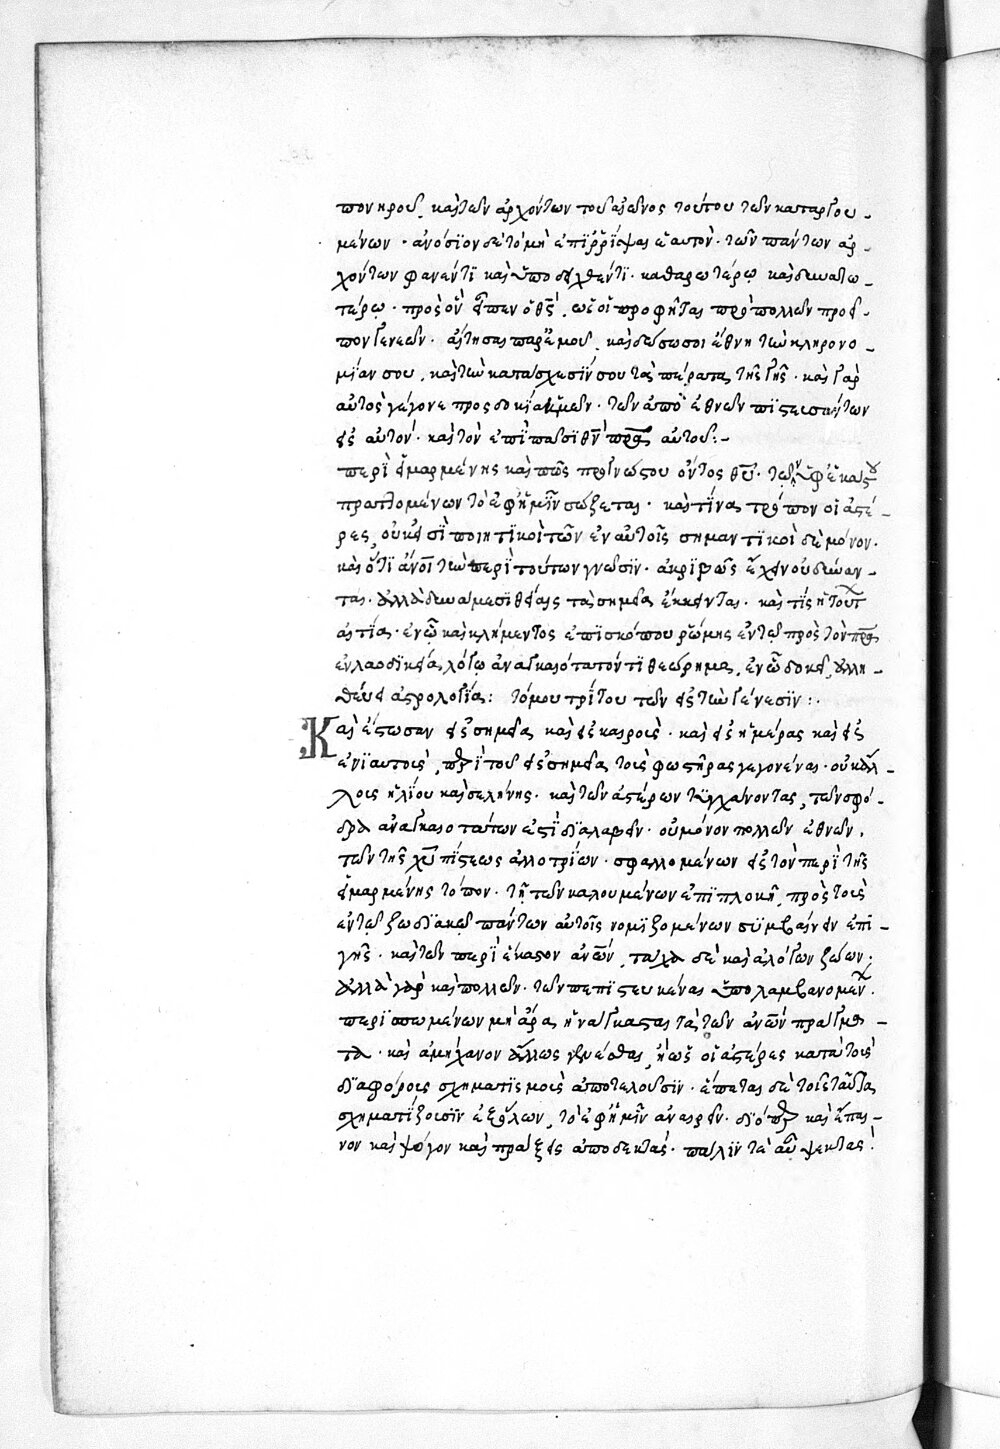 πονηροῦ, καὶ τῶν ἀρχόντων τοῦ αἰῶνος τούτου τῶν καταργου-
μένων· ἀνόσιον δὲ τὸ μὴ ἐπιρρίψαι ἑαυτὸν· τῶν πάντων ἀρ-
χόντων φανέντι καὶ ὑποδειχθέντι· καθαρωτέρω καὶ δυνατω-
τέρω· πρὸς ὃν εἶπεν ὁ θς, ὡς οἱ προφῆται πρὸ πολλῶν προεῖ-
πον γενεῶν· αἴτησαι παρ' ἐμοῦ, καὶ δώσω σοι ἔθνη τὴν κληρονο-
μίαν σου, καὶ τὴν κατάσχεσίν σου τὰ πέρατα τῆς γῆς· καὶ γὰρ
αὐτὸς γέγονε προσδοκία ἡμῶν· τῶν ἀπὸ ἐθνῶν πιστευσάντων
εἰς αὐτὸν· καὶ τὸν ἐπὶ πᾶσι θν πρα αὐτοῦ:-
περὶ εἱμαρμένης καὶ πῶς προγνώστου ὄντος θυ· τῶν ὑφ' ἑκάστου
πραττομένων τὸ ἐφ' ἡμῖν σώζεται· καὶ τίνα τρόπον οἱ ἀστέ-
ρες, οὐκ εἰσὶ ποιητικοὶ τῶν ἐν αὐτοῖς σημαντικοὶ δὲ μόνον·
καὶ ὅτι ἄνοι τὴν περὶ τούτων γνῶσιν· ἀκριβῶς ἔχειν οὐ δύναν-
ται· ἀλλὰ δυνάμεσι θείαις τὰ σημεῖα ἔκκειται· καὶ τίς ἡ τούτ
αἰτία· ἐν ᾧ καὶ κλήμεντος ἐπισκόπου ῥώμης ἐν τῷ πρὸς τὸν πρα
ἐν λαοδικεία λόγω ἀναγκαιότατόν τι θεώρημα, ἐν ᾧ δοκεῖ, ἀλη-
θεύει ἀστρολογία: τόμου τρίτου τῶν εἰς τὴν γένεσιν:·
Καὶ ἔστωσαν εἰς σημεῖα καὶ εἰς καιροὺς· καὶ εἰς ἡμέρας καὶ εἰς
ἐνιαυτοὺς, περὶ τοῦ εἰς σημεῖα τοὺς φωστῆρας γεγονέναι· οὐκ ἄλ-
λοις ἡλίου καὶ σελήνης· καὶ τῶν ἀστέρων τυγχάνοντας, τῶν σφό-
δρα ἀναγκαιοτάτων ἐστὶ διαλαβεῖν· οὐ μόνον πολλῶν ἐθνῶν,
τῶν τῆς χυ πίστεως ἀλλοτρίων· σφαλλομένων εἰς τὸν περὶ τῆς
εἱμαρμένης τόπον· τῇ τῶν καλουμένων ἐπιπλοκῇ, πρὸς τοὺς
ἐν τῷ ζωδιακῷ πάντων αὐτοῖς νομιζομένων συμβαίνειν ἐπὶ
γῆς· καὶ τῶν περὶ ἕκαστον ἀνων, τάχα δὲ καὶ ἀλόγων ζώων·
ἀλλὰ γὰρ καὶ πολλῶν· τῶν πεπιστευκέναι ὑπολαμβανομέν·
περισπωμένων μὴ ἄρα, ἠνάγκασται τὰ τῶν ἀνων πράγμα-
τα· καὶ ἀμήχανον ἄλλως γενέσθαι, ἢ ὡς οἱ ἀστέρες κατὰ τοὺς
διαφόρους σχηματισμοὺς ἀποτελοῦσιν· ἕπεται δὲ τοῖς ταῦτα
σχηματίζουσιν ἐξ ὅλων, τὸ ἐφ' ἡμῖν ἀναιρεῖν· διόπερ καὶ ἔπαι-
νον καὶ ψόγον καὶ πράξεις ἀποδεκτὰς· πάλιν τὲ αὖ ψεκτὰς·